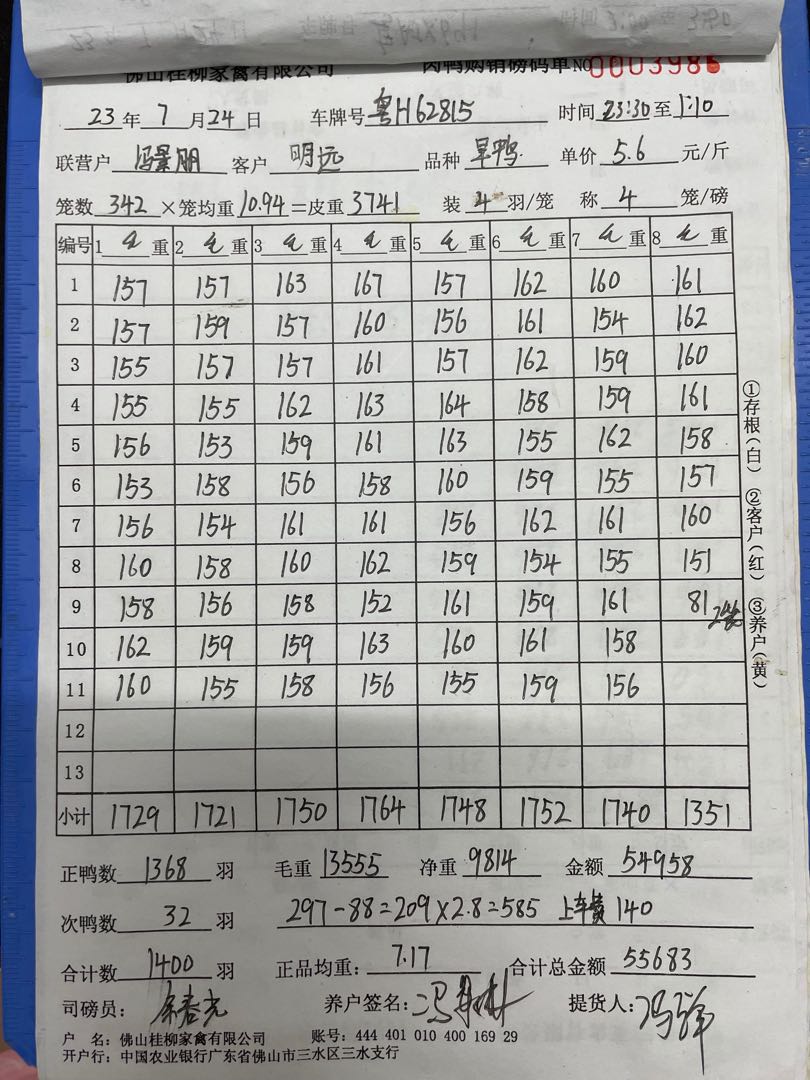 佛山桂柳家禽有限公司 肉鸭购销磅码单 NO 0003986
23年7月24日 车牌号 粤H62815 时间 23:30至1:10
联营户 冯景朋 客户 明远 品种 旱鸭 单价 5.6 元/斤
笼数 342 ×笼均重 10.94 =皮重 3741 装 4 羽/笼 称 4 笼/磅
编号 1 毛 重 2 毛 重 3 毛 重 4 毛 重 5 毛 重 6 毛 重 7 毛 重 8 毛 重
1 157 157 163 167 157 162 160 161
2 157 159 157 160 156 161 154 162
3 155 157 157 161 157 162 159 160
4 155 155 162 163 164 158 159 161
5 156 153 159 161 163 155 162 158
6 153 158 156 158 160 159 155 157
7 156 154 161 161 156 162 161 160
8 160 158 160 162 159 154 155 151
9 158 156 158 152 161 159 161 81 2笼
10 162 159 159 163 160 161 158
11 160 155 158 156 155 159 156
12
13
小计 1729 1721 1750 1764 1748 1752 1740 1351
①存根(白) ②客户(红) ③养户(黄)
正鸭数 1368 羽 毛重 13555 净重 9814 金额 54958
次鸭数 32 羽 297-88=209×2.8=585 上车费 140
合计数 1400 羽 正品均重: 7.17 合计总金额 55683
司磅员: 养户签名: 冯 提货人: 冯
户 名: 佛山桂柳家禽有限公司 账号: 444 401 010 400 169 29
开户行: 中国农业银行广东省佛山市三水区三水支行